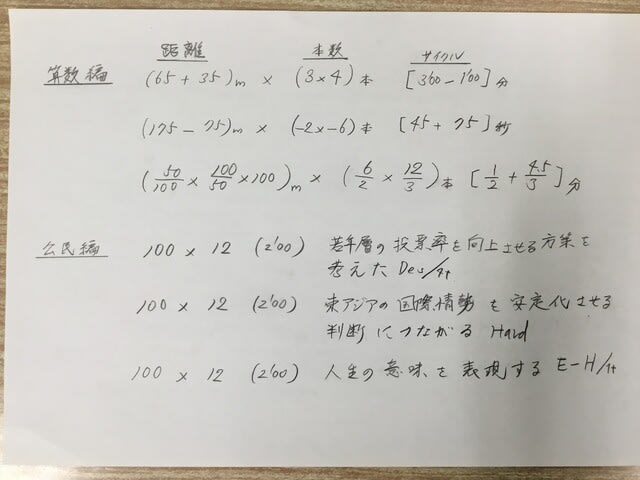 距離 本数 サイクル
算数編 (65 + 35)m × (3×4)本 [3'00 - 1'00]分
(175 - 75)m × (-2×-6)本 [45 + 75]秒
(50/100 × 100/50 × 100)m × (6/2 × 12/3)本 [1/2 + 4.5/3]分
公民編 100 × 12 (2'00) 若年層の投票率を向上させる方策を
考えた Des/1t
100 × 12 (2'00) 東アジアの国際情勢を安定化させる
判断につながる Hard
100 × 12 (2'00) 人生の意味を表現する E-H/1t